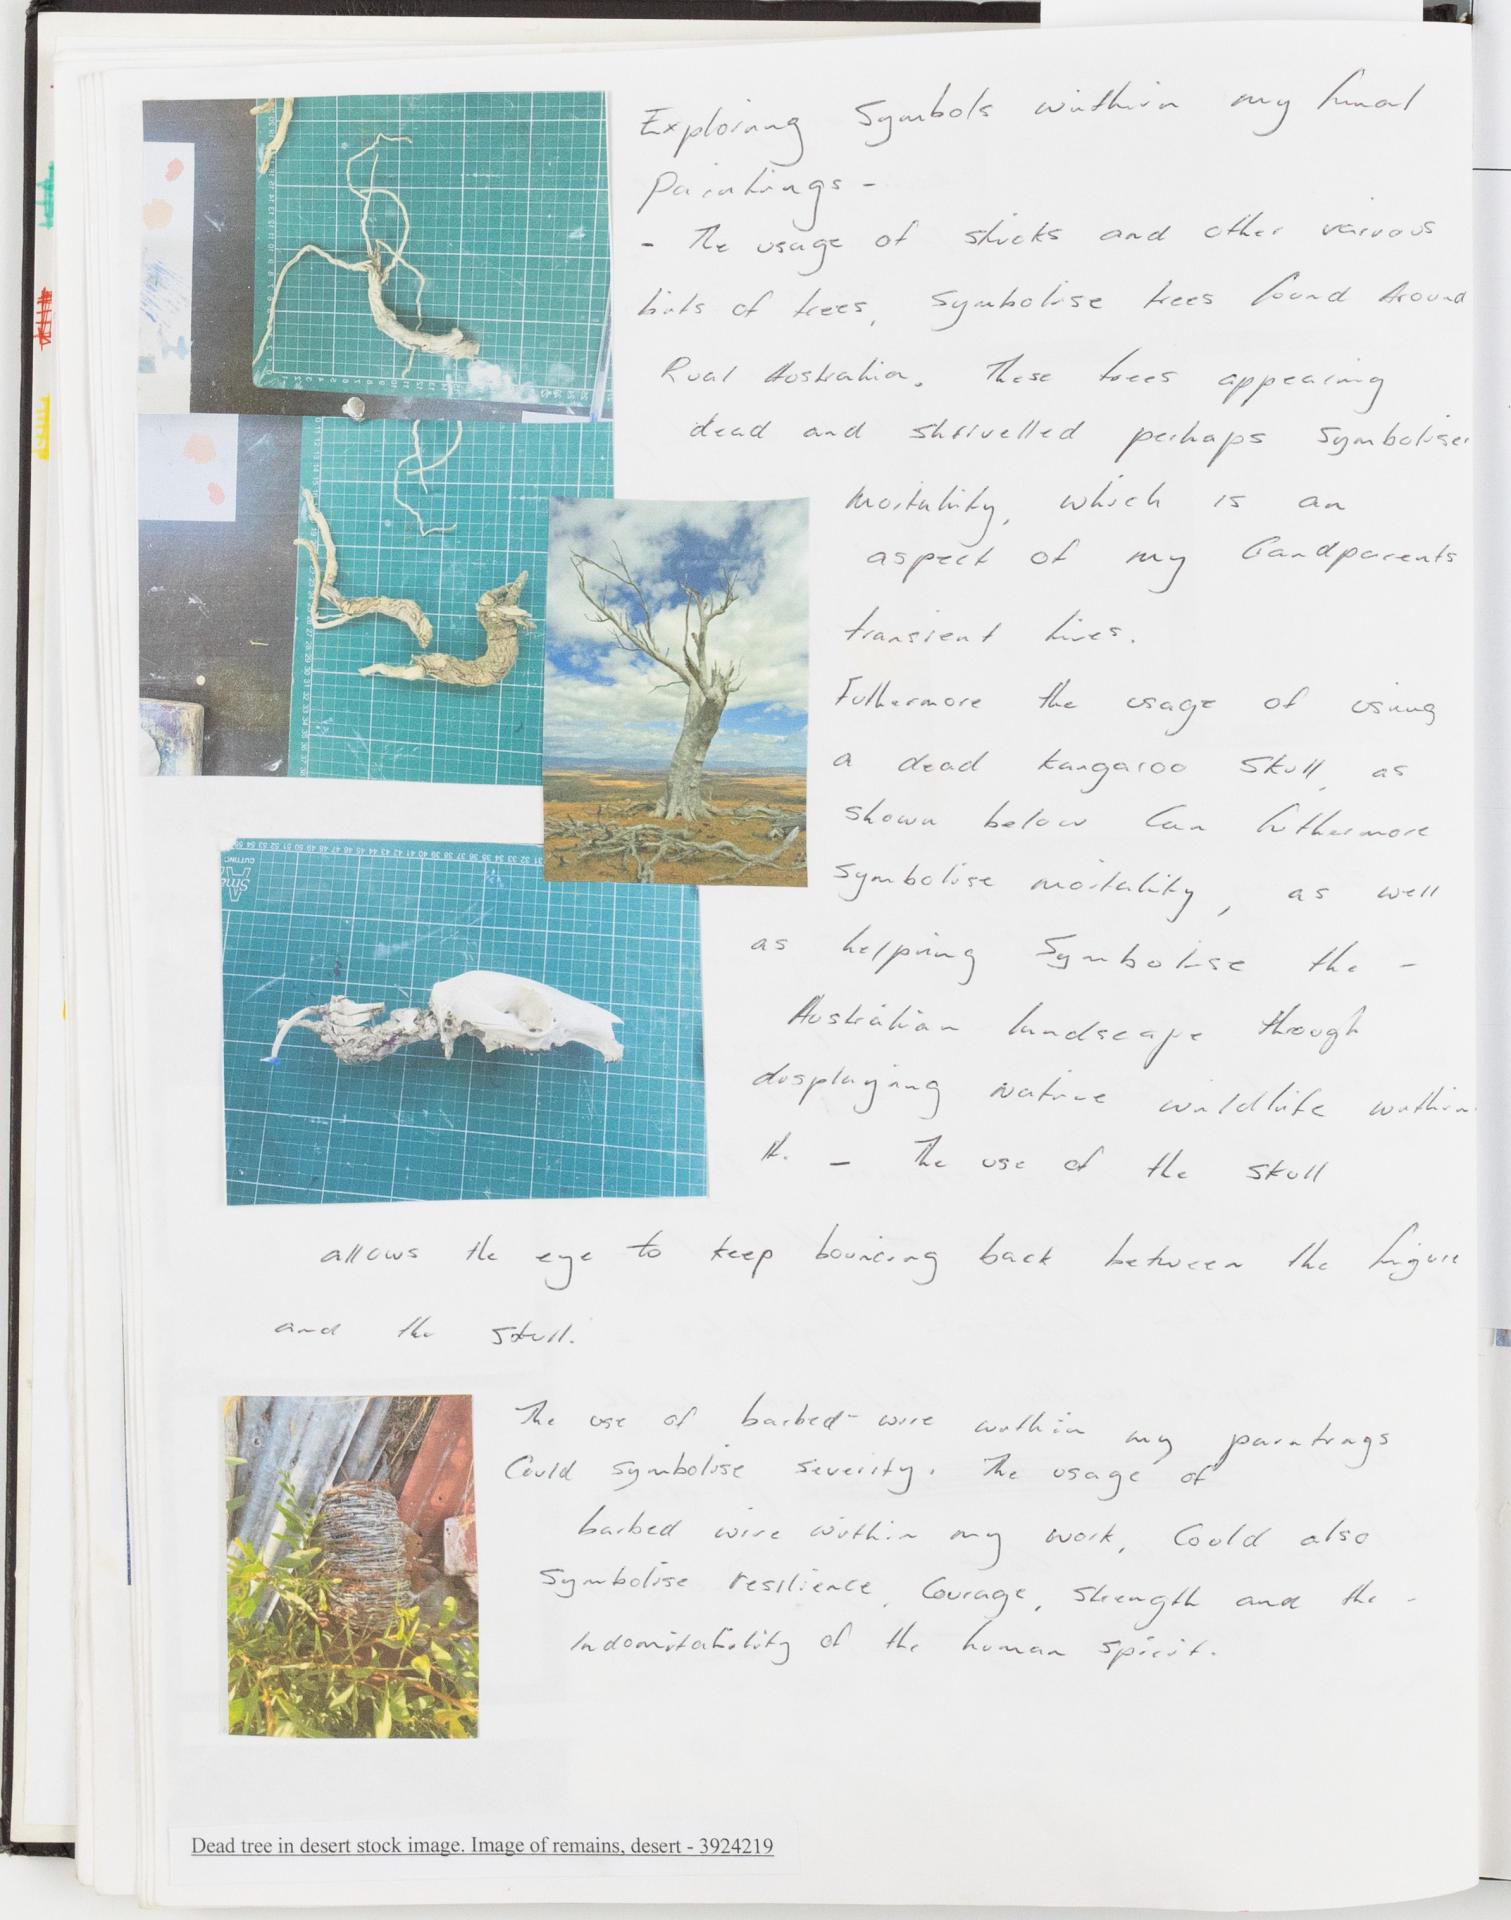 Exploring Symbols within my final
Paintings -
- The usage of sticks and other various
bits of trees, Symbolise trees found Around
Rual Australia. These trees appearing
dead and shrivelled perhaps Symbolises
Mortality, which is an
aspect of my Gandparents
transient lives.
Futhermore the usage of using
a dead kangaroo skull, as
shown below Can futhermore
Symbolise mortality, as well
as helping Symbolise the -
Australian landscape through
displaying Native wildlife within
it. - The use of the skull
allows the eye to keep bouncing back between the figure
and the skull.
The use of barbed-wire within my paintings
Could symbolise severity. The usage of
barbed wire within my work, Could also
Symbolise resilience, Courage, strength and the -
Indomitability of the human spirit.
Dead tree in desert stock image. Image of remains, desert - 3924219